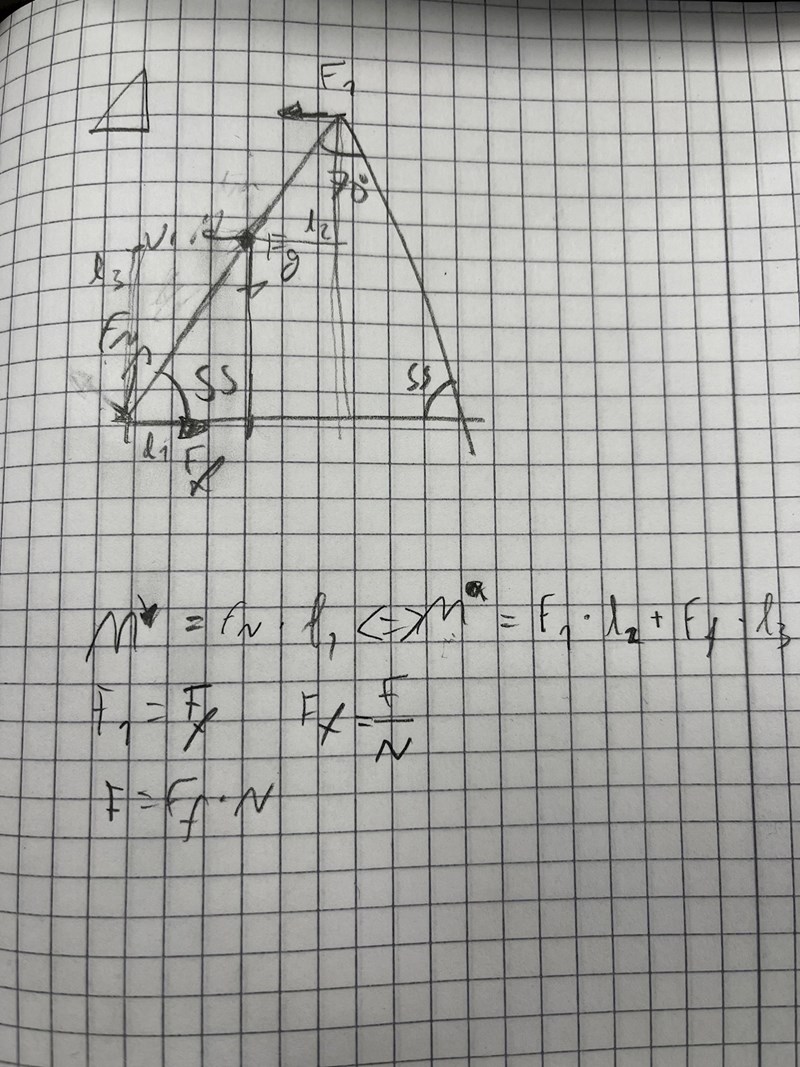 F₁
70°
l₂
g
l₃
Fₙ
55
55
l₁
Fₓ
M = Fₙ · l₁ <=> M = F₁ · l₂ + F_f · l₃
F₁ = F_f F_f = F/N
F = F_f · N